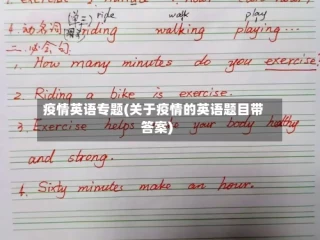 ride walk play
4.动名词(单三) riding walking playing...
二.必会句.
1. How many minutes do you exercise?
2. Riding a bike is exercise.
疫情英语专题(关于疫情的英语题目带
答案)
3. Exercise helps your body healthy
and strong.
4. Sixty minutes make an hour.